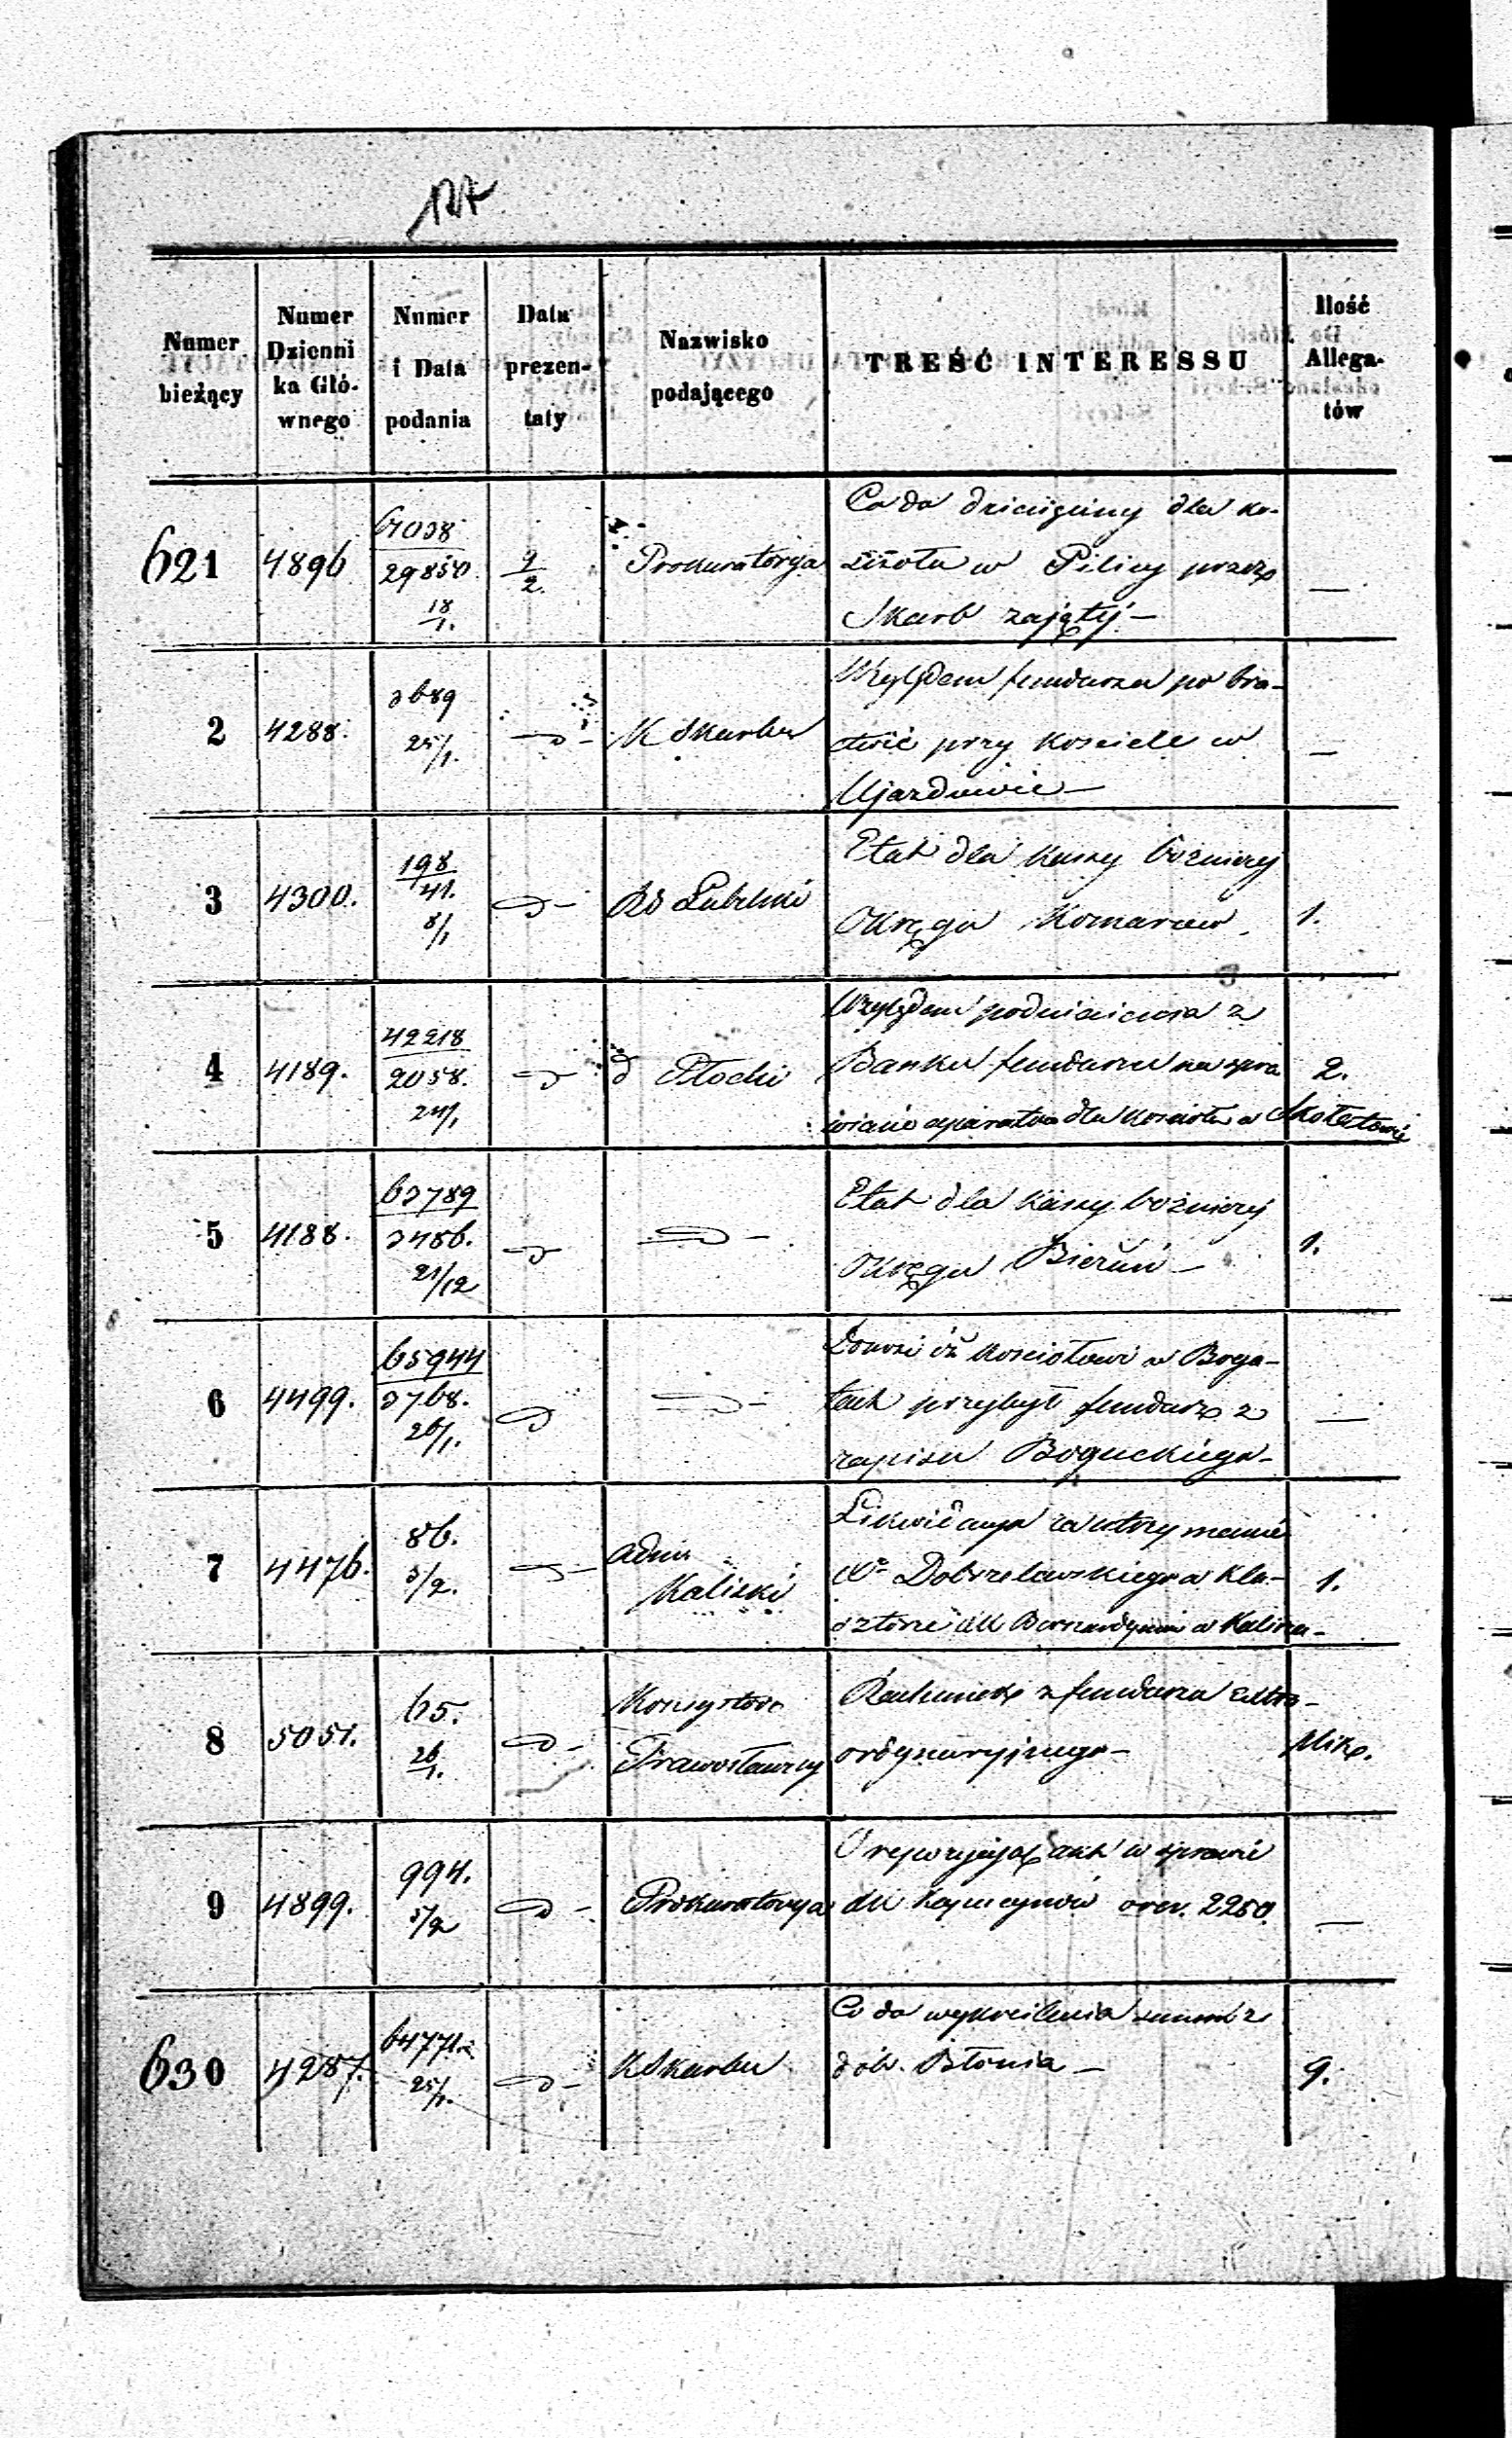 127
Numer bieżący
Numer Dzienni ka Głó- wnego
Numer i Data podania
Data prezen- taty
Nazwisko podającego
TREŚĆ INTERESSU
Ilość Allega- tów
621 4896 67038 29850 18/1. 9/2. Prokuratorya
Co do dziesięciny dla ko-
ścioła w Pilicy przez
Skarb zajętéj —
2 4288. 3689 25/1. K Skarbu
Względem funduszu po bra-
ctwie przy Kosciele w
Ujazdowie — —
3 4300. 198 41. 8/1 Rd Lubelski
Etat dla kassy bożniczej
Okręgu Komarow. 1.
4 4189. 42218 2058. 24/1 d Płocki
Względem podniesienia z
Banku funduszu na spra
wienie aparatow dla Kościoła w Skołatowie
2.
5 4188. 63789 3486. 21/12
Etat dla kassy bożniczej
Okręgu Bieżuń — 1.
6 4499. 65944 3768. 26/1.
Donosi iż Kościołowi w Boga-
tach przybył fundusz z
zapisu Boguckiego — —
7 4476. 86. 3/2. Adm Kaliski
Likwidacya za utrzymanie
Xa Dobrzelewskiego w Kla-
sztorze XX Bernardynow w Kaliszu — 1.
8 5051. 65. 26/1. Konsystorz Prawosławny
Rachunek z funduszu extra-
ordynaryjnego — Mik.
9 4899. 994. 5/2 Prokuratorya
akt w sprawie
XX Kapucynów 2250. —
630 4287. 64771 25/1. K Skarbu
Co do wykreślenia summ z
dóbr. Błonia — 9.